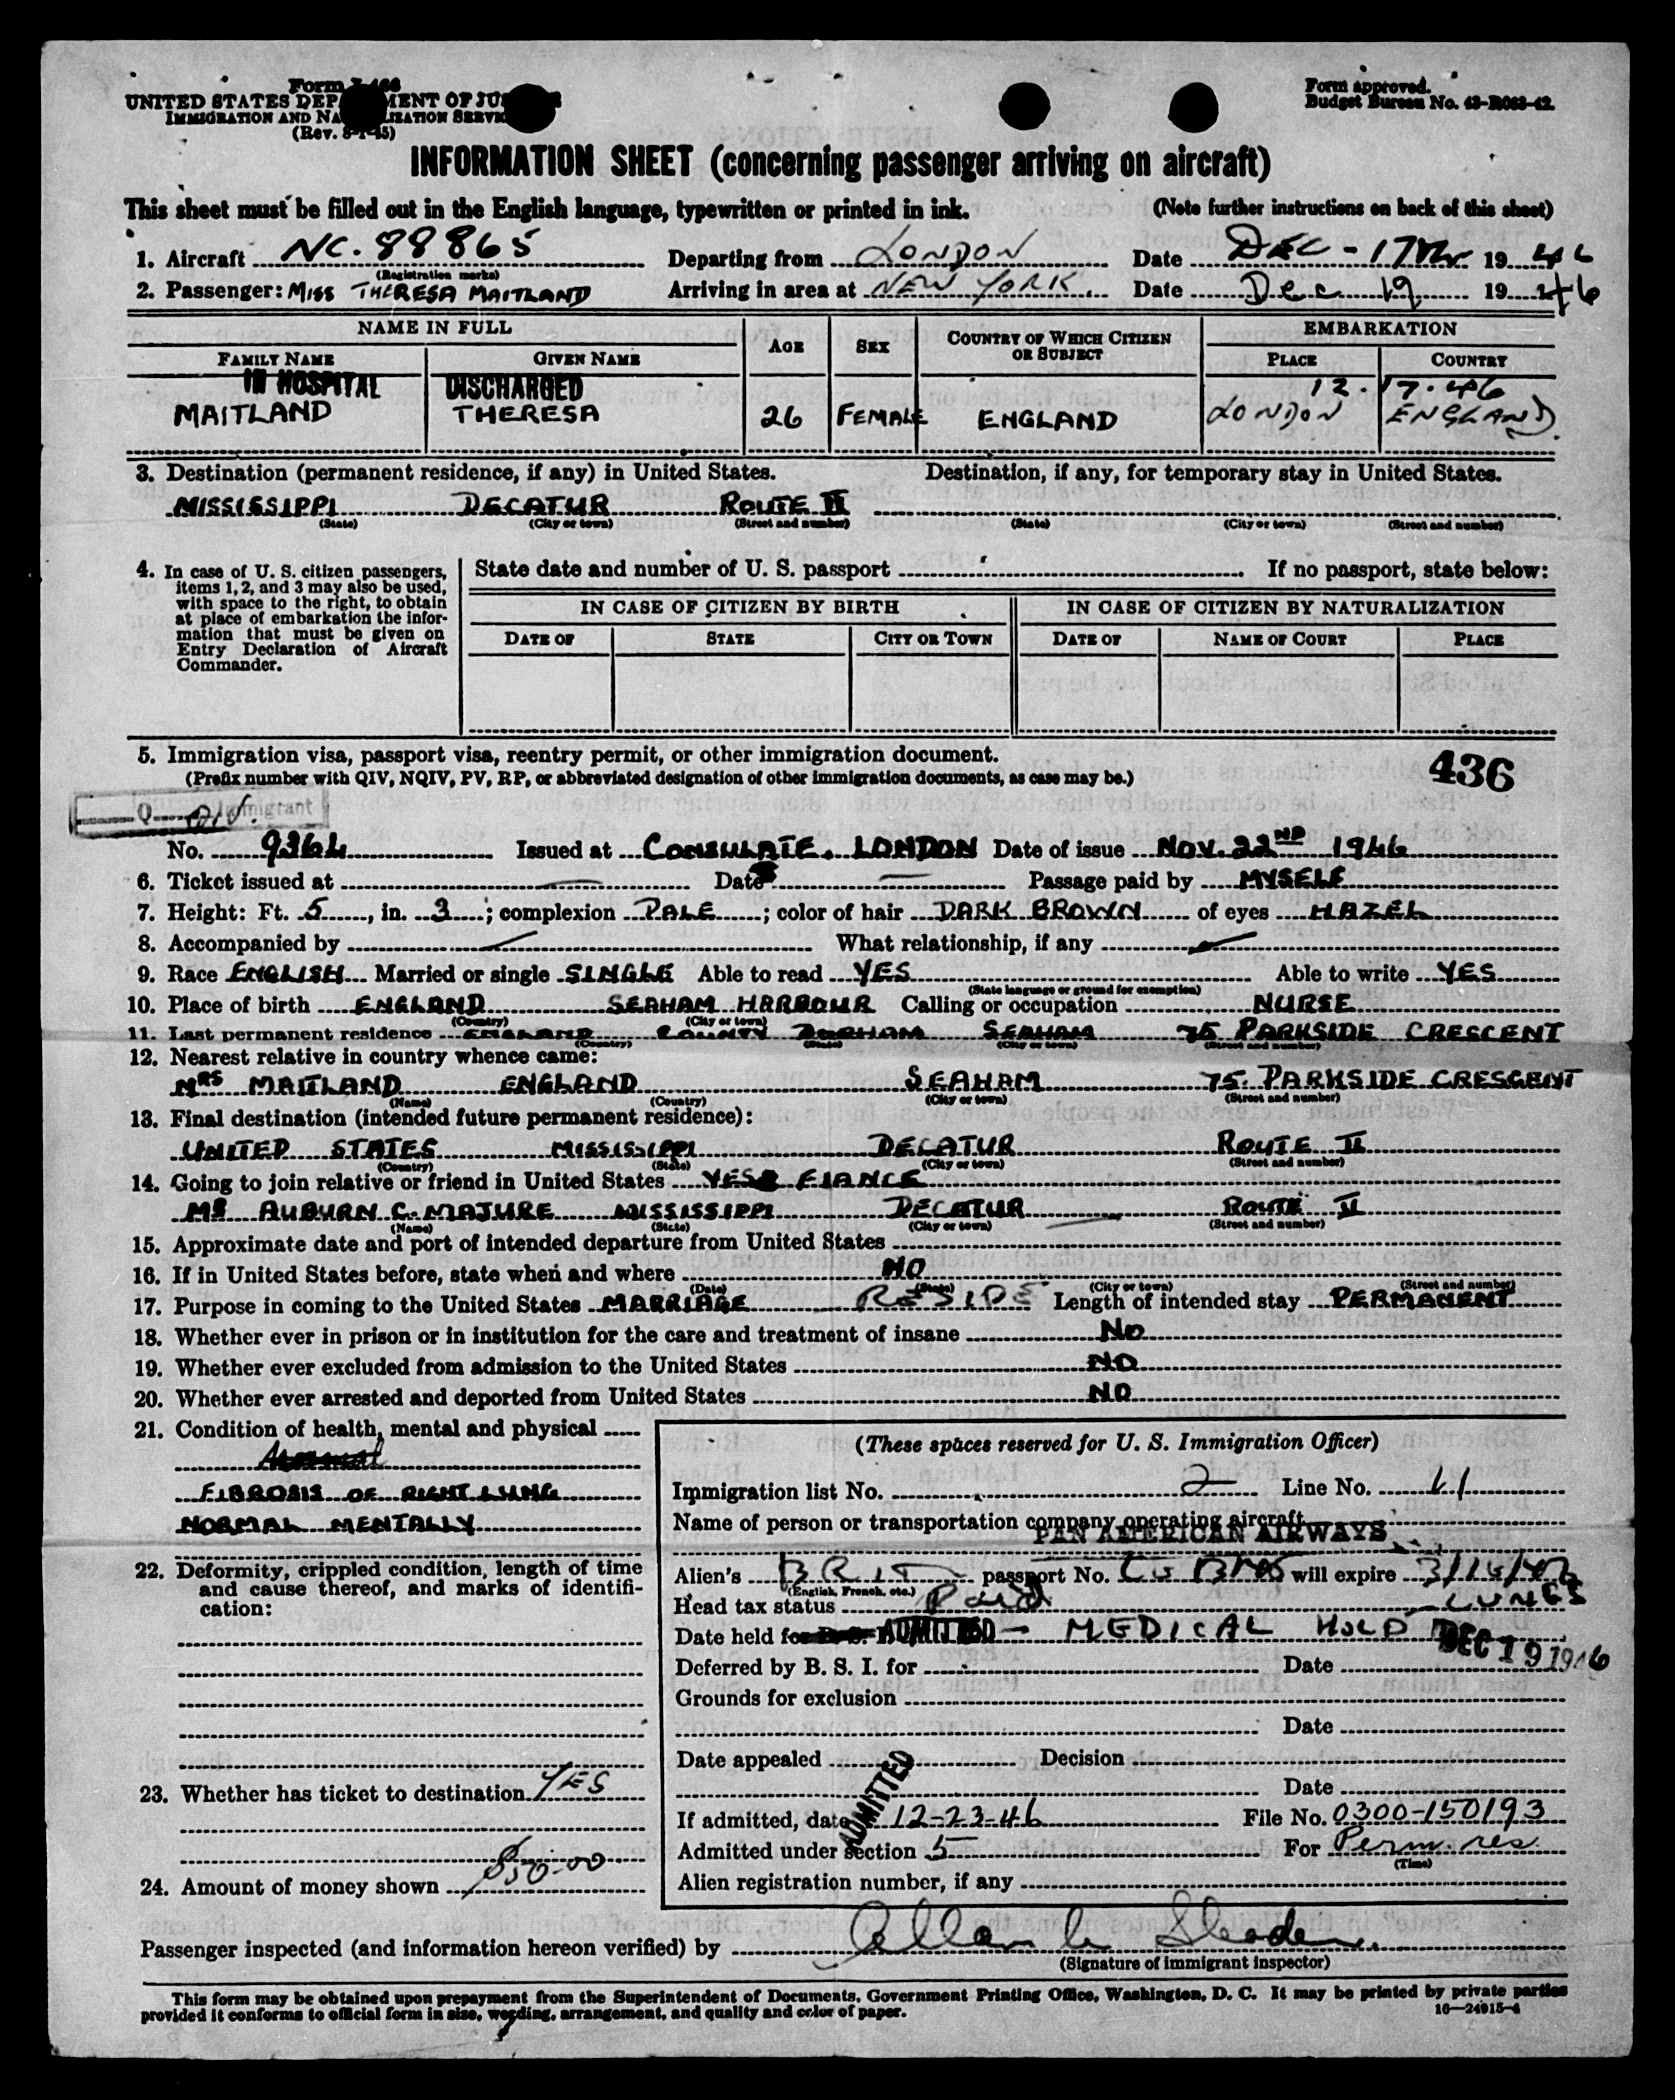 Form I-466
UNITED STATES DEPARTMENT OF JUSTICE
IMMIGRATION AND NATURALIZATION SERVICE
(Rev. 8-1-45)
Form approved.
Budget Bureau No. 43-R063-42.
INFORMATION SHEET (concerning passenger arriving on aircraft)
This sheet must be filled out in the English language, typewritten or printed in ink. (Note further instructions on back of this sheet)
1. Aircraft NC. 88865 Departing from LONDON Date DEC - 17TH 1946
(Registration marks)
2. Passenger: MISS THERESA MAITLAND Arriving in area at NEW YORK. Date Dec 19 1946
NAME IN FULL AGE SEX COUNTRY OF WHICH CITIZEN OR SUBJECT EMBARKATION
FAMILY NAME GIVEN NAME PLACE COUNTRY
IN HOSPITAL DISCHARGED 12. 17. 46
MAITLAND THERESA 26 FEMALE ENGLAND LONDON ENGLAND.
3. Destination (permanent residence, if any) in United States. Destination, if any, for temporary stay in United States.
MISSISSIPPI DECATUR ROUTE II
(State) (City or town) (Street and number) (State) (City or town) (Street and number)
4. In case of U. S. citizen passengers, items 1, 2, and 3 may also be used, with space to the right, to obtain at place of embarkation the information that must be given on Entry Declaration of Aircraft Commander.
State date and number of U. S. passport If no passport, state below:
IN CASE OF CITIZEN BY BIRTH IN CASE OF CITIZEN BY NATURALIZATION
DATE OF STATE CITY OR TOWN DATE OF NAME OF COURT PLACE
5. Immigration visa, passport visa, reentry permit, or other immigration document.
(Prefix number with QIV, NQIV, PV, RP, or abbreviated designation of other immigration documents, as case may be.)
436
Q Immigrant
QIV.
No. 9364 Issued at CONSULATE. LONDON Date of issue NOV. 22ND 1946
6. Ticket issued at Date Passage paid by MYSELF
7. Height: Ft. 5, in. 3; complexion PALE; color of hair DARK BROWN of eyes HAZEL
8. Accompanied by What relationship, if any
9. Race ENGLISH Married or single SINGLE Able to read YES Able to write YES
(State language or ground for exemption)
10. Place of birth ENGLAND SEAHAM HARBOUR Calling or occupation NURSE
(Country) (City or town)
11. Last permanent residence ENGLAND COUNTY DURHAM SEAHAM 75 PARKSIDE CRESCENT
(Country) (State) (City or town) (Street and number)
12. Nearest relative in country whence came:
MRS MAITLAND ENGLAND SEAHAM 75. PARKSIDE CRESCENT
(Name) (Country) (City or town) (Street and number)
13. Final destination (intended future permanent residence):
UNITED STATES MISSISSIPPI DECATUR ROUTE II
(Country) (State) (City or town) (Street and number)
14. Going to join relative or friend in United States YES FIANCE
MR AUBURN C. MAJURE MISSISSIPPI DECATUR ROUTE II
(Name) (State) (City or town) (Street and number)
15. Approximate date and port of intended departure from United States
16. If in United States before, state when and where NO
(Date) (State) (City or town) (Street and number)
17. Purpose in coming to the United States MARRIAGE RESIDE Length of intended stay PERMANENT
18. Whether ever in prison or in institution for the care and treatment of insane NO
19. Whether ever excluded from admission to the United States NO
20. Whether ever arrested and deported from United States NO
21. Condition of health, mental and physical
FIBROSIS OF RIGHT LUNG
NORMAL MENTALLY
22. Deformity, crippled condition, length of time and cause thereof, and marks of identification:
23. Whether has ticket to destination YES
24. Amount of money shown $50.00
(These spaces reserved for U. S. Immigration Officer)
Immigration list No. 2 Line No. 11
Name of person or transportation company operating aircraft
PAN AMERICAN AIRWAYS
Alien's BRIT passport No. will expire
(English, French, etc.)
Head tax status Paid LUNGS
Date held for ADMITTED - MEDICAL HOLD DEC 19 1946
Deferred by B. S. I. for Date
Grounds for exclusion
Date
Date appealed Decision
Date
ADMITTED
If admitted, date 12-23-46 File No. 0300-150193
Admitted under section 5 For Perm. res.
(Time)
Alien registration number, if any
Passenger inspected (and information hereon verified) by
(Signature of immigrant inspector)
This form may be obtained upon prepayment from the Superintendent of Documents, Government Printing Office, Washington, D. C. It may be printed by private parties
provided it conforms to official form in size, wording, arrangement, and quality and color of paper. 16—24915-4